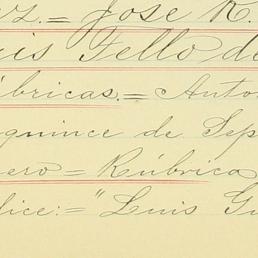 ez.= Jose R.
uis Tello de
úbricas.= Anto
quince de Sep
ero= Rúbrica
dice:= "Luis Gu